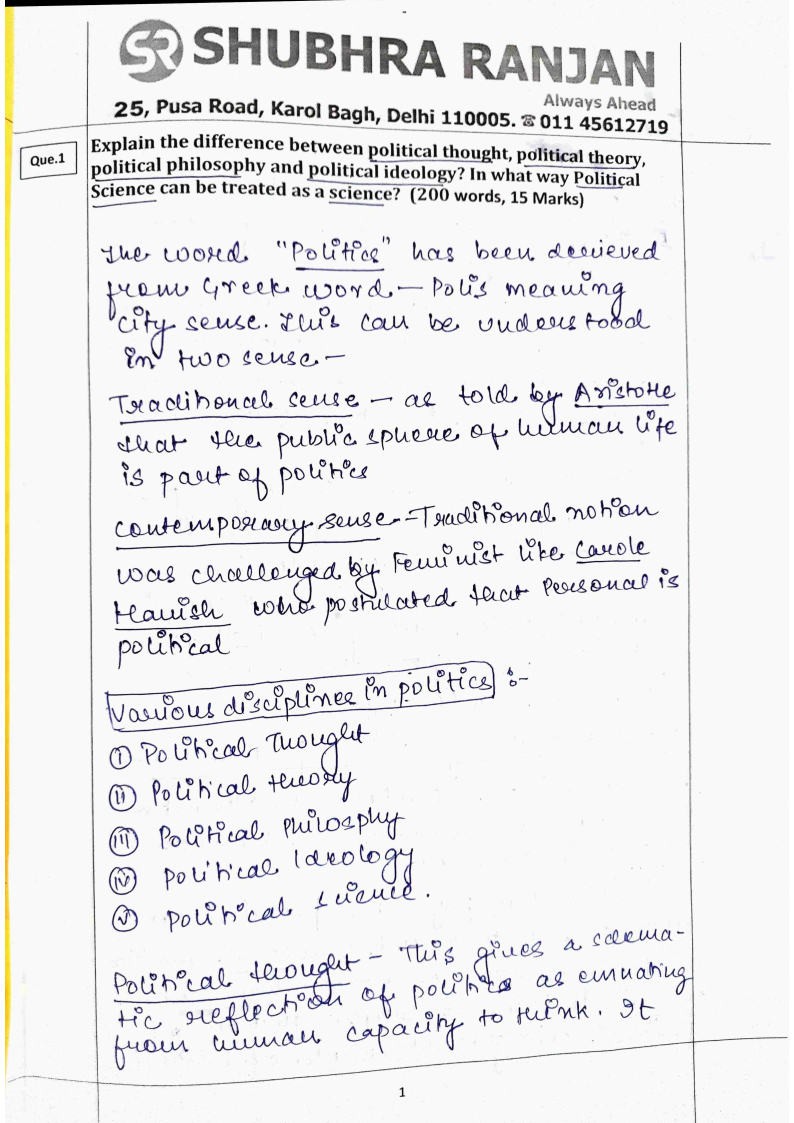 SR SHUBHRA RANJAN
Always Ahead
25, Pusa Road, Karol Bagh, Delhi 110005. ☎ 011 45612719
Que.1
Explain the difference between political thought, political theory,
political philosophy and political ideology? In what way Political
Science can be treated as a science? (200 words, 15 Marks)
The word "Politics" has been derieved
from Greek word - Polis meaning
city sense. This can be understood
in two sense -
Traditional sense - as told by Aristotle
that the public sphere of human life
is part of politics
Contemporary sense - Traditional notion
was challenged by Feminist like Carole
Hanish who postulated that Personal is
political
Various disciplines in politics :-
(I) Political Thought
(II) Political theory
(III) Political Philosphy
(IV) Political Ideology
(V) Political science.
Political thought - This gives a schema-
tic reflection of politics as emnating
from human capacity to think. It
1